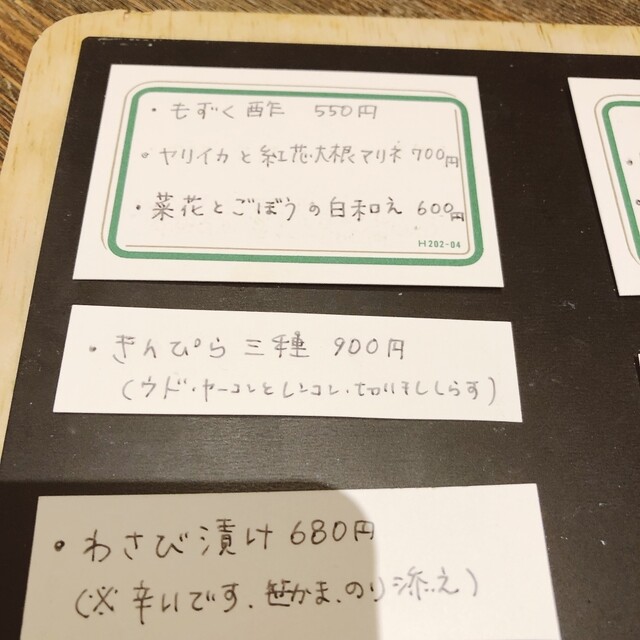 ・もずく酢 550円
・ヤリイカと紅芯大根マリネ 700円
・菜花とごぼうの白和え 600円
H202-04
・きんぴら三種 900円
(ウド・ヤーコンとレンコン・切干ししらす)
・わさび漬け 680円
(※辛いです、笹かま、のり添え)